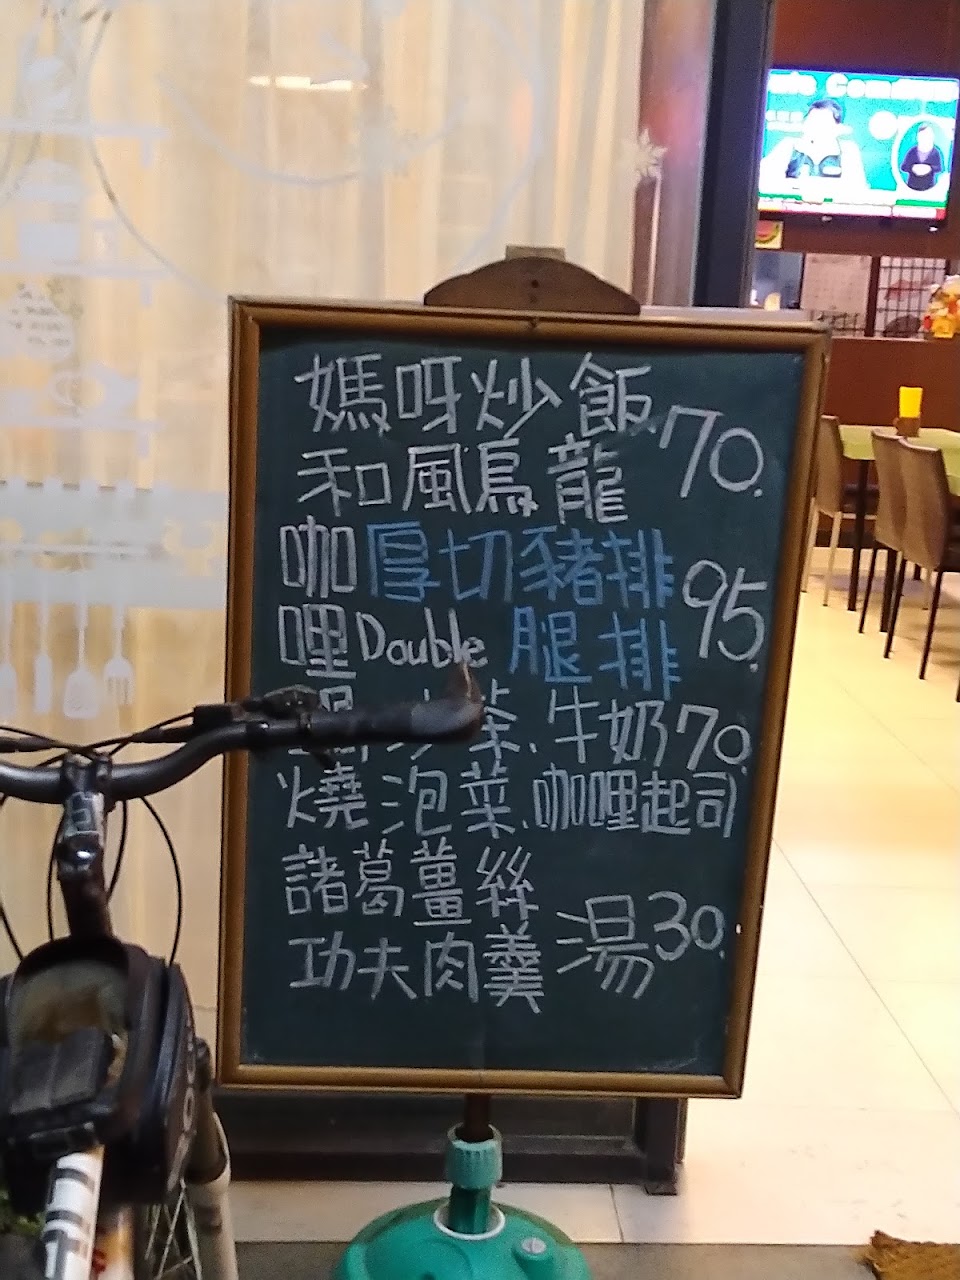 媽呀炒飯
和風烏龍 70.
咖 厚切豬排
哩 Double 腿排 95.
鍋 菜、牛奶 70.
燒泡菜、咖哩起司
諸葛薑絲
功夫肉羹 湯 30.